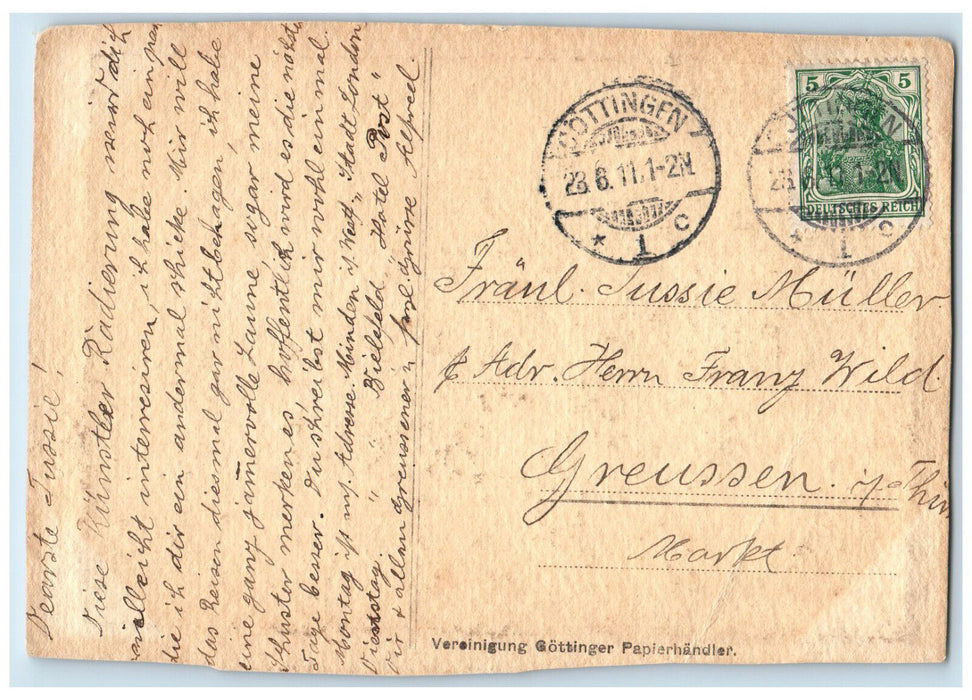 Dearste Tussie!
Diese Künstler Radierung wird dich
vielleicht interresiren, ich habe noch ein paar
die ich dir ein andermal schicke. Mir will
das Reisen diesmal gar nicht behagen, ich habe
eine ganz jam̄ervolle Laune, sogar meine
Kunster merken es, hoffentlich wird es die nächste
Tage besser. Du schreibst mir wohl einmal.
Montag ist m. Adresse Minden i. West. "Stadt London
Dienstag. " " Bielefeld Hotel Post"
Dir & allen Greussener n. frdl. Grüsse Alfred.
GÖTTINGEN
23.6.11.1-2N.
* 1 c
GÖTTINGEN
23.6.11.1-2N
* 1 c
5 5
DEUTSCHES REICH
Fräul. Tussie Müller
p. Adr. Herrn Franz Wild.
Greussen. i/Thür
Markt.
Vereinigung Göttinger Papierhändler.